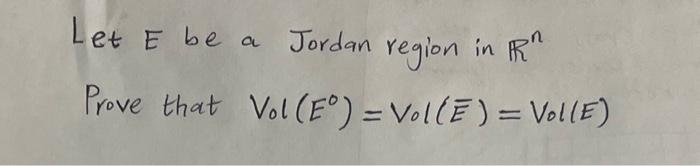 Let E be a Jordan region in ℝⁿ
Prove that Vol(E⁰) = Vol(E̅) = Vol(E)